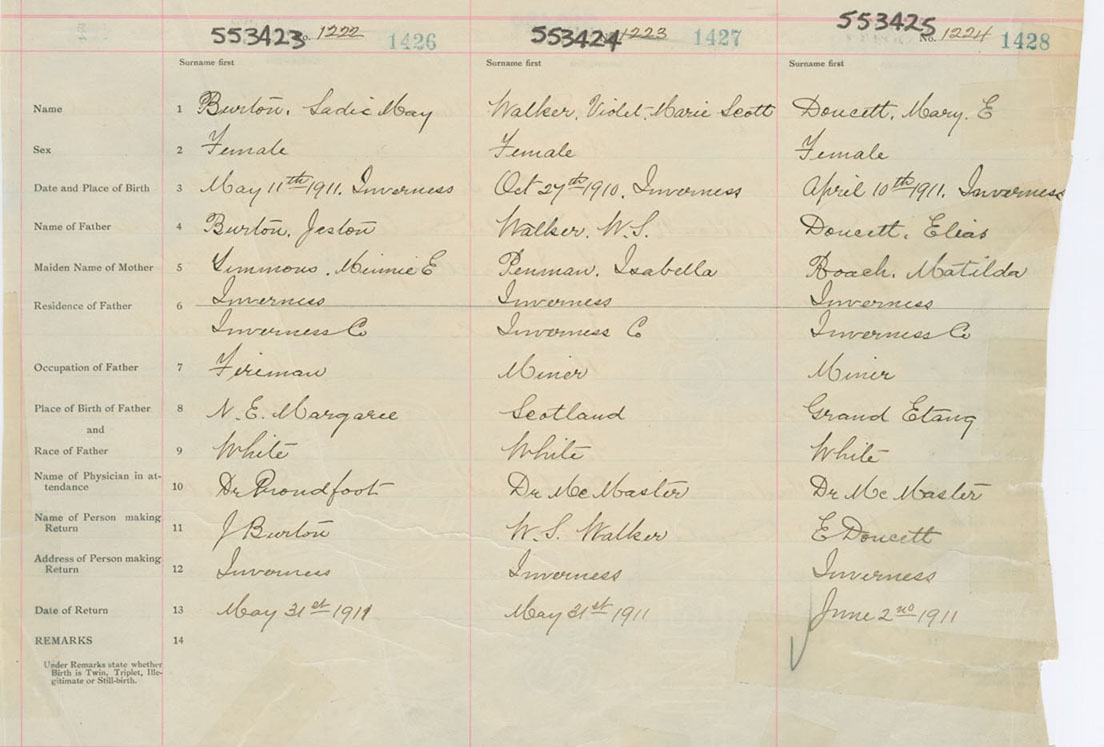 553423 No. 1222 1426 553424 No. 1223 1427 553425 No. 1224 1428
Surname first Surname first Surname first
Name 1 Burton, Sadie May Walker, Violet Marie Scott Doucett, Mary. E
Sex 2 Female Female Female
Date and Place of Birth 3 May 11th 1911. Inverness Oct 27th 1910. Inverness April 10th 1911, Inverness
Name of Father 4 Burton, Jeston Walker, W.S. Doucett, Elias
Maiden Name of Mother 5 Simmons, Minnie E Penman, Isabella Roach, Matilda
Residence of Father 6 Inverness Inverness Inverness
Inverness Co Inverness C Inverness Co
Occupation of Father 7 Fireman Miner Miner
Place of Birth of Father 8 N. E. Margaree Scotland Grand Etang
and
Race of Father 9 White White White
Name of Physician in at-
tendance 10 Dr Proudfoot Dr McMaster Dr McMaster
Name of Person making
Return 11 J Burton W. S. Walker E Doucett
Address of Person making
Return 12 Inverness Inverness Inverness
Date of Return 13 May 31st 1911 May 31st 1911 June 2nd 1911
REMARKS 14
Under Remarks state whether
Birth is Twin, Triplet, Ille-
gitimate or Still-birth.